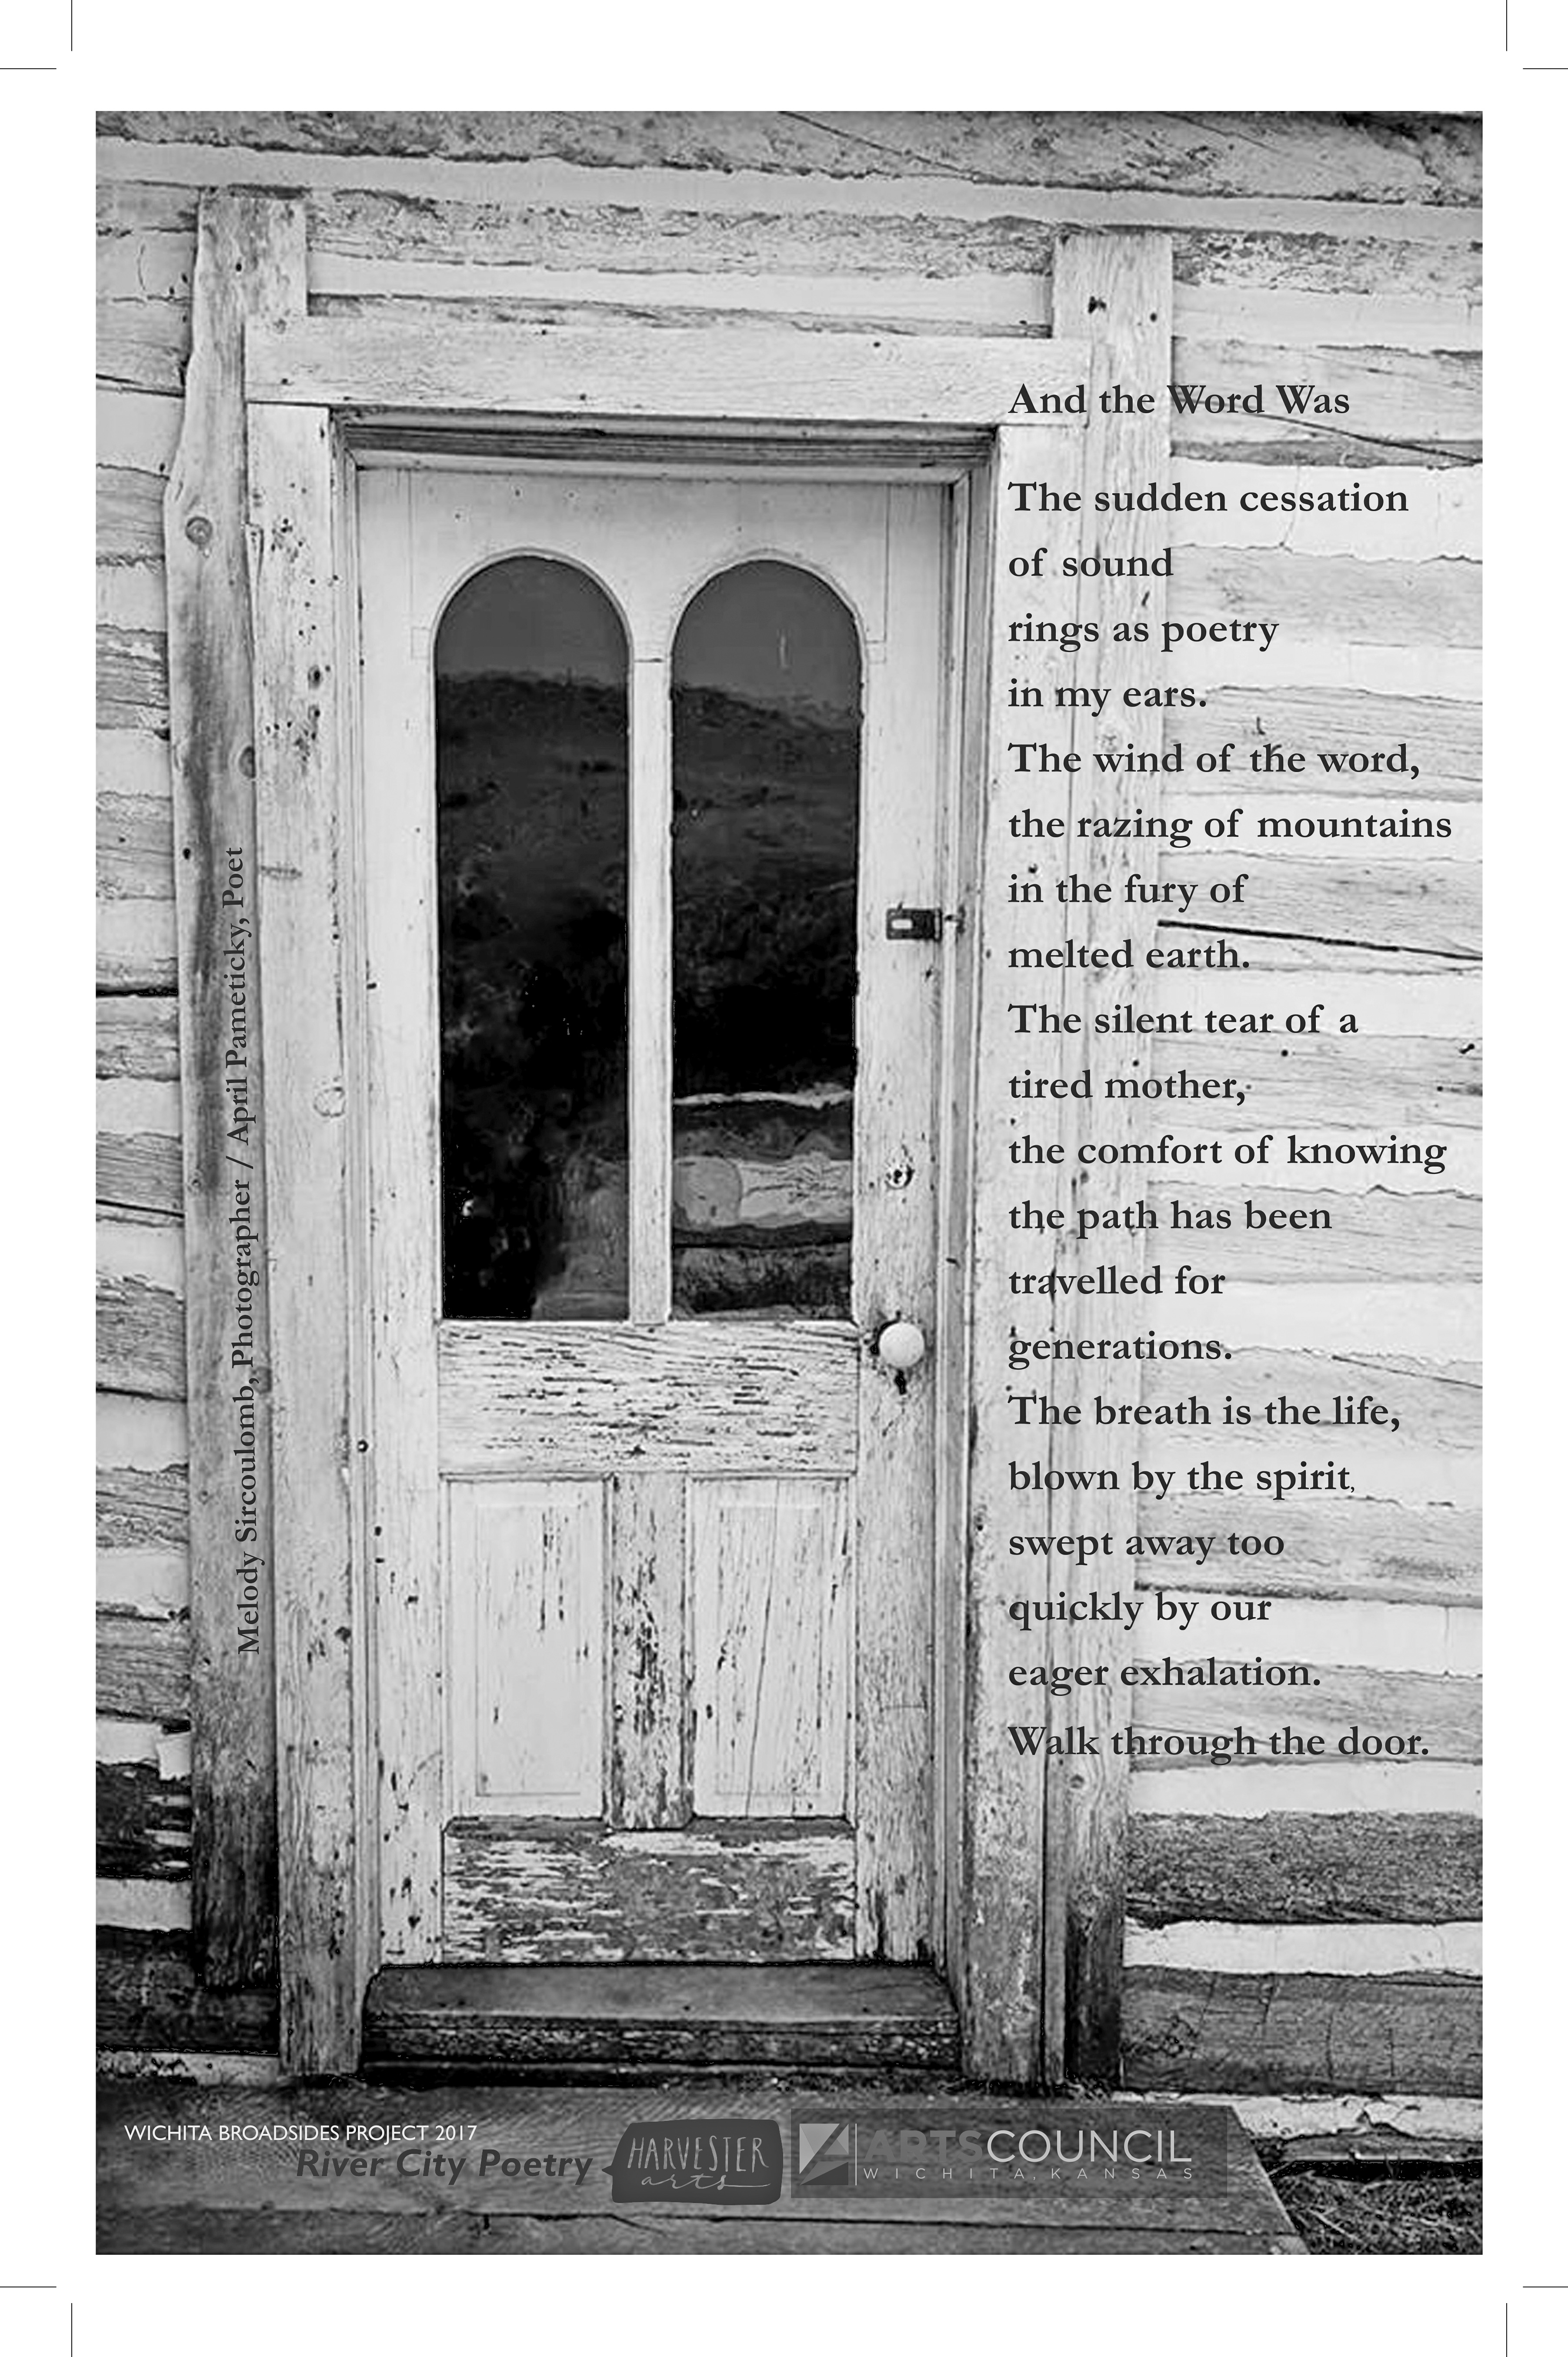 And the Word Was
The sudden cessation
of sound
rings as poetry
in my ears.
The wind of the word,
the razing of mountains
in the fury of
melted earth.
The silent tear of a
tired mother,
the comfort of knowing
the path has been
travelled for
generations.
The breath is the life,
blown by the spirit,
swept away too
quickly by our
eager exhalation.
Walk through the door.
Melody Sircoulomb, Photographer / April Pameticky, Poet
WICHITA BROADSIDES PROJECT 2017
River City Poetry
HARVESTER
arts
ARTSCOUNCIL
WICHITA, KANSAS